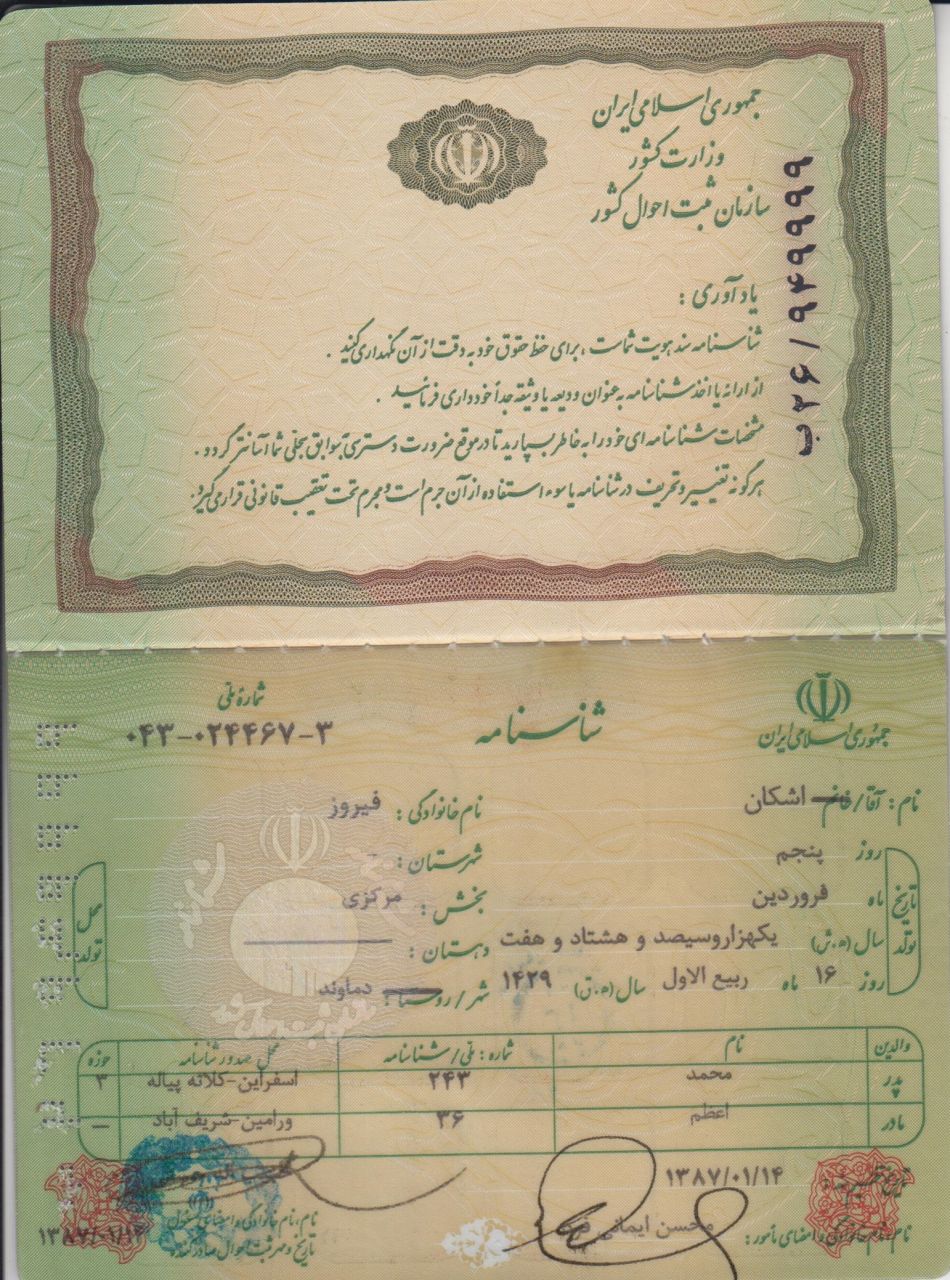 جمهوری اسلامی ایران
وزارت کشور
سازمان ثبت احوال کشور
ب۲۶/۹۴۹۹۹۹
یادآوری :
شناسنامه سند هویت شماست ، برای حفظ حقوق خود به دقت از آن نگهداری کنید .
از ارائه یا اخذ شناسنامه به عنوان ودیعه یا وثیقه جداً خودداری فرمائید .
مشخصات شناسنامه ای خود را به خاطر بسپارید تا در موقع ضرورت دسترسی به سوابق سجلی شما آسانتر گردد .
هرگونه تغییر و تحریف در شناسنامه یا سوء استفاده از آن جرم است و مجرم تحت تعقیب قانونی قرار می گیرد .
جمهوری اسلامی ایران
شناسنامه
شماره ملی
۰۴۳-۰۲۴۴۶۷-۳
نام : آقا/خانم اشکان
نام خانوادگی : فیروز
تاریخ تولد
روز پنجم
ماه فروردین
سال (ه.ش) یکهزاروسیصد و هشتاد و هفت
روز ۱۶ ماه ربیع الاول سال (ه.ق) ۱۴۲۹
محل تولد
شهرستان :
بخش : مرکزی
دهستان :
شهر/روستا : دماوند
والدین نام شماره : ملی/شناسنامه محل صدور شناسنامه حوزه
پدر محمد ۲۴۳ اسفراین-کلاته پیاله ۳
مادر اعظم ۳۶ ورامین-شریف آباد —
تاریخ تنظیم سند : ۱۳۸۷/۰۱/۱۴
نام ، نام خانوادگی و امضای مأمور : محسن ایمانی
نام ، نام خانوادگی و امضای مسئول
تاریخ و مهر ثبت احوال صادرکننده
۱۳۸۷/۰۱/۱۴